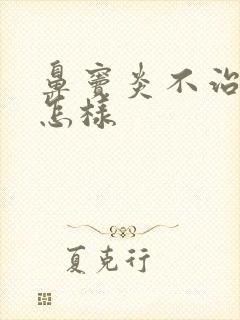 鼻窦炎不治
怎样
夏克行